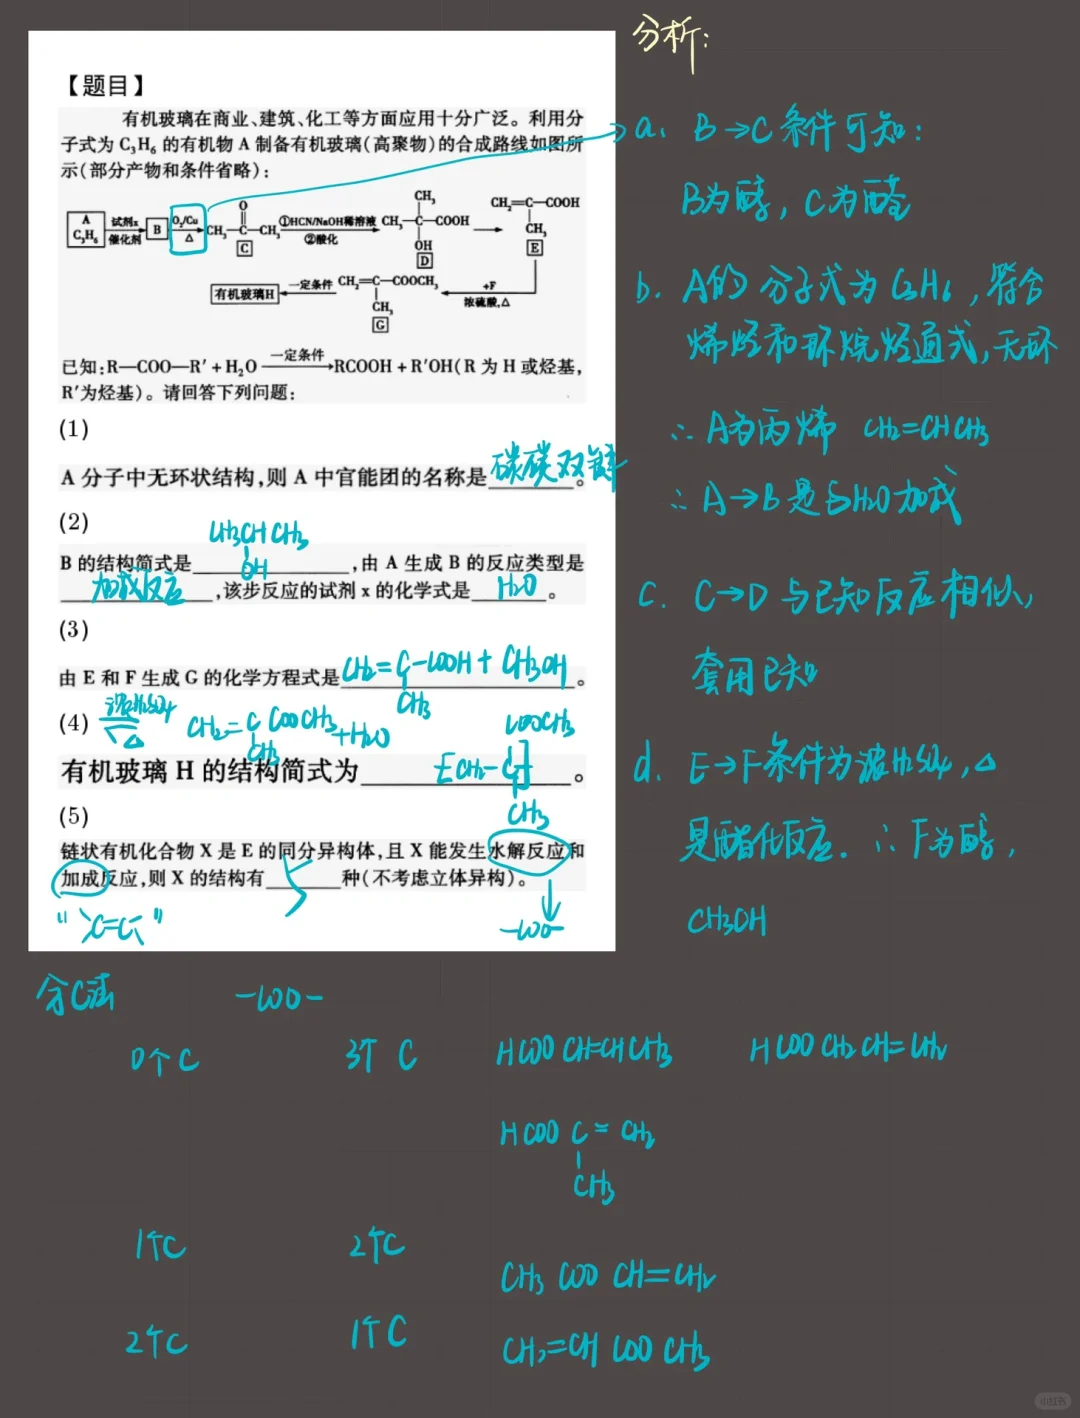 分析:
【题目】
有机玻璃在商业、建筑、化工等方面应用十分广泛。利用分
子式为 C₃H₆ 的有机物 A 制备有机玻璃(高聚物)的合成路线如图所
示(部分产物和条件省略):
A
C₃H₆
试剂x
催化剂
B
O₂/Cu
△
O
CH₃—C—CH₃
C
①HCN/NaOH稀溶液
②酸化
CH₃
CH₃—C—COOH
OH
D
CH₂=C—COOH
CH₃
E
+F
浓硫酸,△
CH₂=C—COOCH₃
CH₃
G
一定条件
有机玻璃H
已知:R—COO—R′+H₂O 一定条件→ RCOOH+R′OH(R 为 H 或烃基,
R′为烃基)。请回答下列问题:
(1)
A 分子中无环状结构,则 A 中官能团的名称是碳碳双键。
(2)
CH₃CHCH₃
OH
B 的结构简式是________,由 A 生成 B 的反应类型是
加成反应,该步反应的试剂 x 的化学式是 H₂O 。
(3)
由 E 和 F 生成 G 的化学方程式是 CH₂=C-COOH + CH₃OH 。
CH₃
(4) 浓H₂SO₄ △ CH₂=C COOCH₃ +H₂O
CH₃
COOCH₃
有机玻璃 H 的结构简式为 [CH₂-C] 。
CH₃
(5)
链状有机化合物 X 是 E 的同分异构体,且 X 能发生水解反应和
加成反应,则 X 的结构有 5 种(不考虑立体异构)。
"C=C"
-COO-
a. B→C条件可知:
B为醇, C为醛
b. A的分子式为C₃H₆,符合
烯烃和环烷烃通式,无环
∴A为丙烯 CH₂=CHCH₃
∴A→B是与H₂O加成
c. C→D 与已知反应相似,
套用已知
d. E→F条件为浓H₂SO₄,△
是酯化反应. ∴F为醇,
CH₃OH
分C法 -COO-
0个C 3个C HCOOCH=CHCH₃ HCOOCH₂CH=CH₂
HCOOC=CH₂
CH₃
1个C 2个C CH₃COOCH=CH₂
2个C 1个C CH₂=CHCOOCH₃
小红书